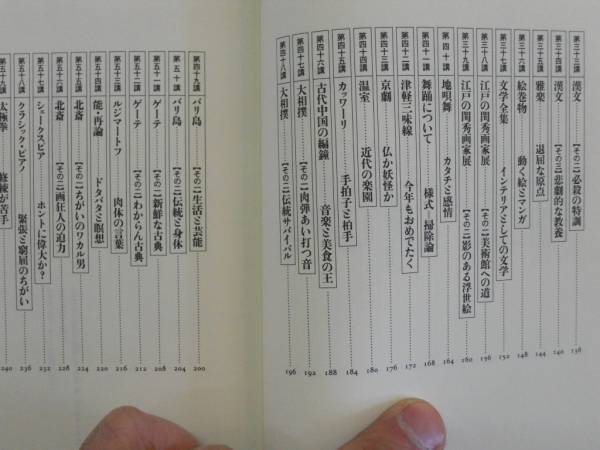 第三十三講 漢文【その二】必殺の特訓 136
第三十四講 漢文【その三】悲劇的な教養 140
第三十五講 雅楽 退屈な原点 144
第三十六講 絵巻物 動く絵とマンガ 148
第三十七講 文学全集 インテリアとしての文学 152
第三十八講 江戸の閨秀画家展【その一】美術館への道 156
第三十九講 江戸の閨秀画家展【その二】影のある浮世絵 160
第四十講 地唄舞 カタチと感情 164
第四十一講 舞踊について 様式—掃除論 168
第四十二講 津軽三味線 今年もおめでたく 172
第四十三講 京劇 仏か妖怪か 176
第四十四講 温室 近代の楽園 180
第四十五講 カッワーリ 手拍子と拍手 184
第四十六講 古代中国の編鐘 音楽と美食の王 188
第四十七講 大相撲【その一】肉弾あい打つ音 192
第四十八講 大相撲【その二】伝統サバイバル 196
第四十九講 バリ島【その一】生活と芸能 200
第五十講 バリ島【その二】伝統と身体 204
第五十一講 ゲーテ【その一】新鮮な古典 208
第五十二講 ゲーテ【その二】わからん古典 212
第五十三講 ルジマートフ 肉体の言葉 216
第五十四講 能・再論 ドタバタと瞑想 220
第五十五講 北斎【その一】ちがいのワカル男 224
第五十六講 北斎【その二】画狂人の迫力 228
第五十七講 シェークスピア ホントに偉大か? 232
第五十八講 クラシック・ピアノ 緊張と窮屈のちがい 236
第五十九講 太極拳 修練が苦手 240